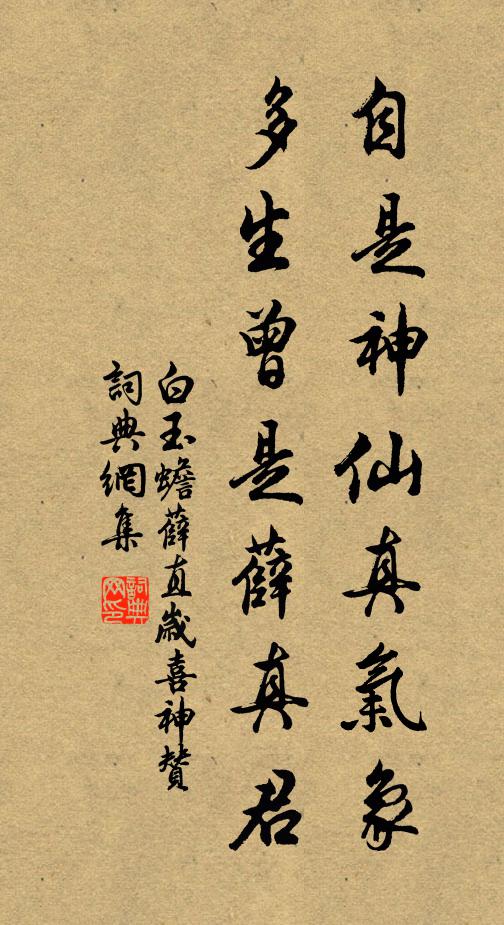 自是神仙真氣象
多生曾是薛真君
白玉蟾薛直歲喜神贊
詞典網集
詞典网印